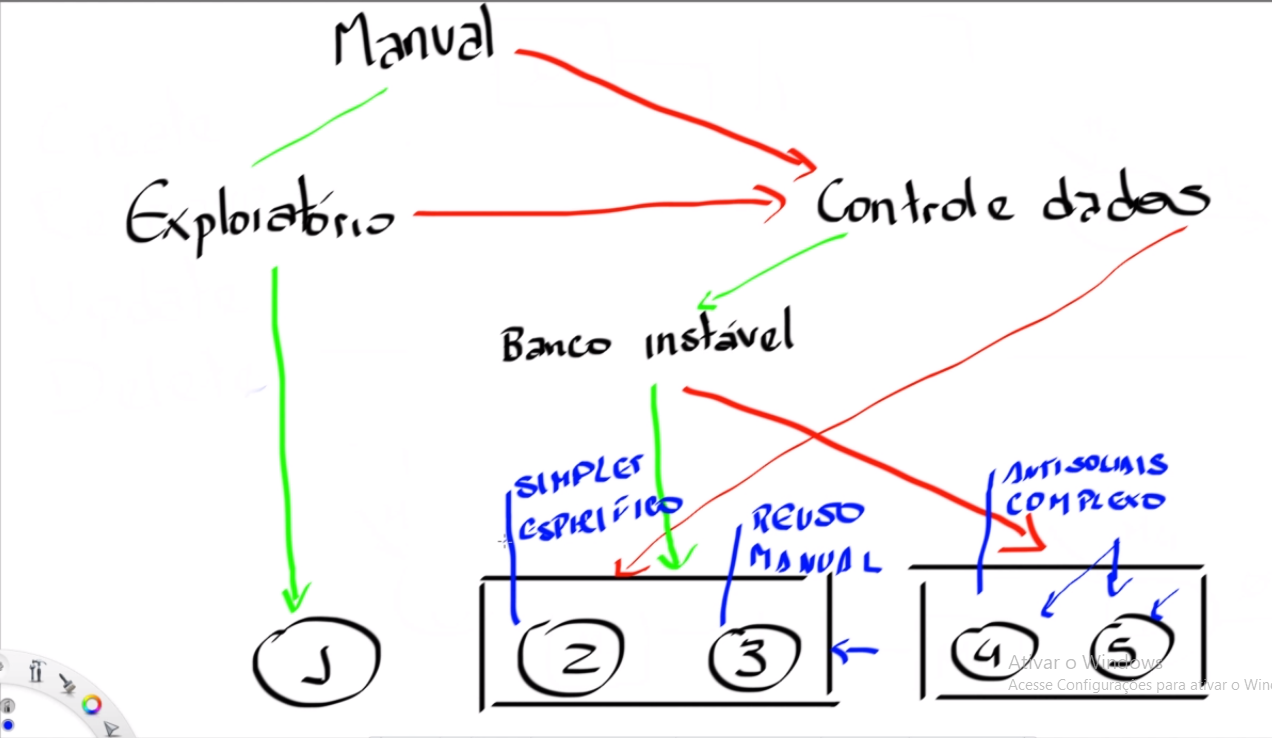 Manual
Exploratório
Controle dados
Banco instável
SIMPLES
ESPECÍFICO
REUSO
MANUAL
ANTISOCIAIS
COMPLEXO
1
2
3
4
5
Ativar o Windows
Acesse Configurações para ativar o Win